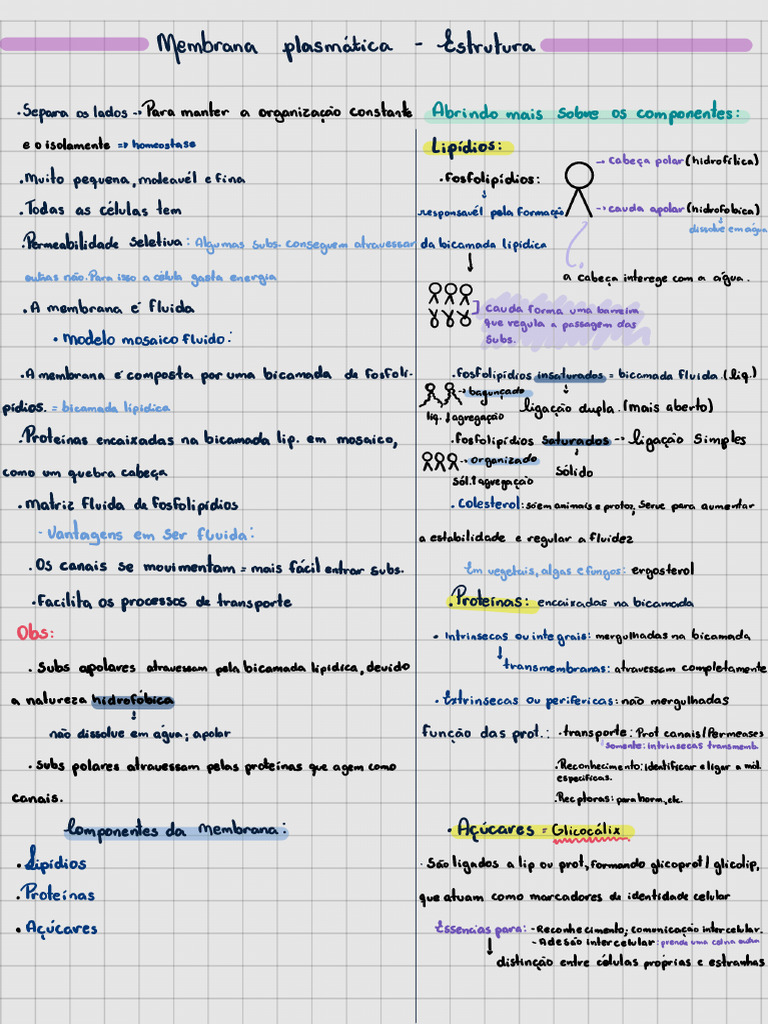 Membrana plasmática - Estrutura
• Separa os lados -> Para manter a organização constante
e o isolamente => homeostase
• Muito pequena, moleavél e fina
• Todas as células tem
• Permeabilidade seletiva: Algumas subs. conseguem atravessar
outras não. Para isso a célula gasta energia
• A membrana é fluida
• Modelo mosaico fluido:
• A membrana é composta por uma bicamada de fosfoli-
pídios. = bicamada lipídica
• Proteínas encaixadas na bicamada lip. em mosaico,
como um quebra cabeça
• Matriz fluida de fosfolipídios
- Vantagens em ser fluida:
• Os canais se movimentam = mais fácil entrar subs.
• Facilita os processos de transporte
Obs:
• Subs apolares atravessam pela bicamada lipídica, devido
a natureza hidrofóbica
não dissolve em água; apolar
• Subs polares atravessam pelas proteínas que agem como
canais.
Componentes da Membrana:
• Lipídios
• Proteínas
• Açúcares
Abrindo mais sobre os componentes:
Lipídios:
• Fosfolipídios:
-> cabeça polar (hidrofílica)
responsavél pela formação
-> cauda apolar (hidrofóbica)
dissolve em água
da bicamada lipídica
a cabeça interege com a água.
Cauda forma uma barreira
que regula a passagem das
subs.
• Fosfolipídios insaturados = bicamada fluida. (liq.)
-> bagunçado
liq. ↓ agregação
ligação dupla. (mais aberto)
• Fosfolipídios saturados -> ligação simples
-> organizado
sól. ↑ agregação
sólido
• Colesterol: só em animais e protoz, serve para aumentar
a estabilidade e regular a fluidez
Em vegetais, algas e fungos: ergosterol
• Proteínas: encaixadas na bicamada
• Intrínsecas ou integrais: mergulhadas na bicamada
transmembranas: atravessam completamente
• Extrínsecas ou perifericas: não mergulhadas
Função das prot.: • transporte: Prot canais/Permeases
somente: intrínsecas transmemb.
• Reconhecimento: identificar e ligar a mól.
específicas.
• Recptoras: para horm, etc.
• Açúcares = Glicocálix
• São ligados a lip ou prot, formando glicoprot/ glicolip,
que atuam como marcadores de identidade celular
Essencias para: - Reconhecimento; comunicação intercelular.
- Adesão intercelular: prende uma cel na outra
distinção entre células próprias e estranhas